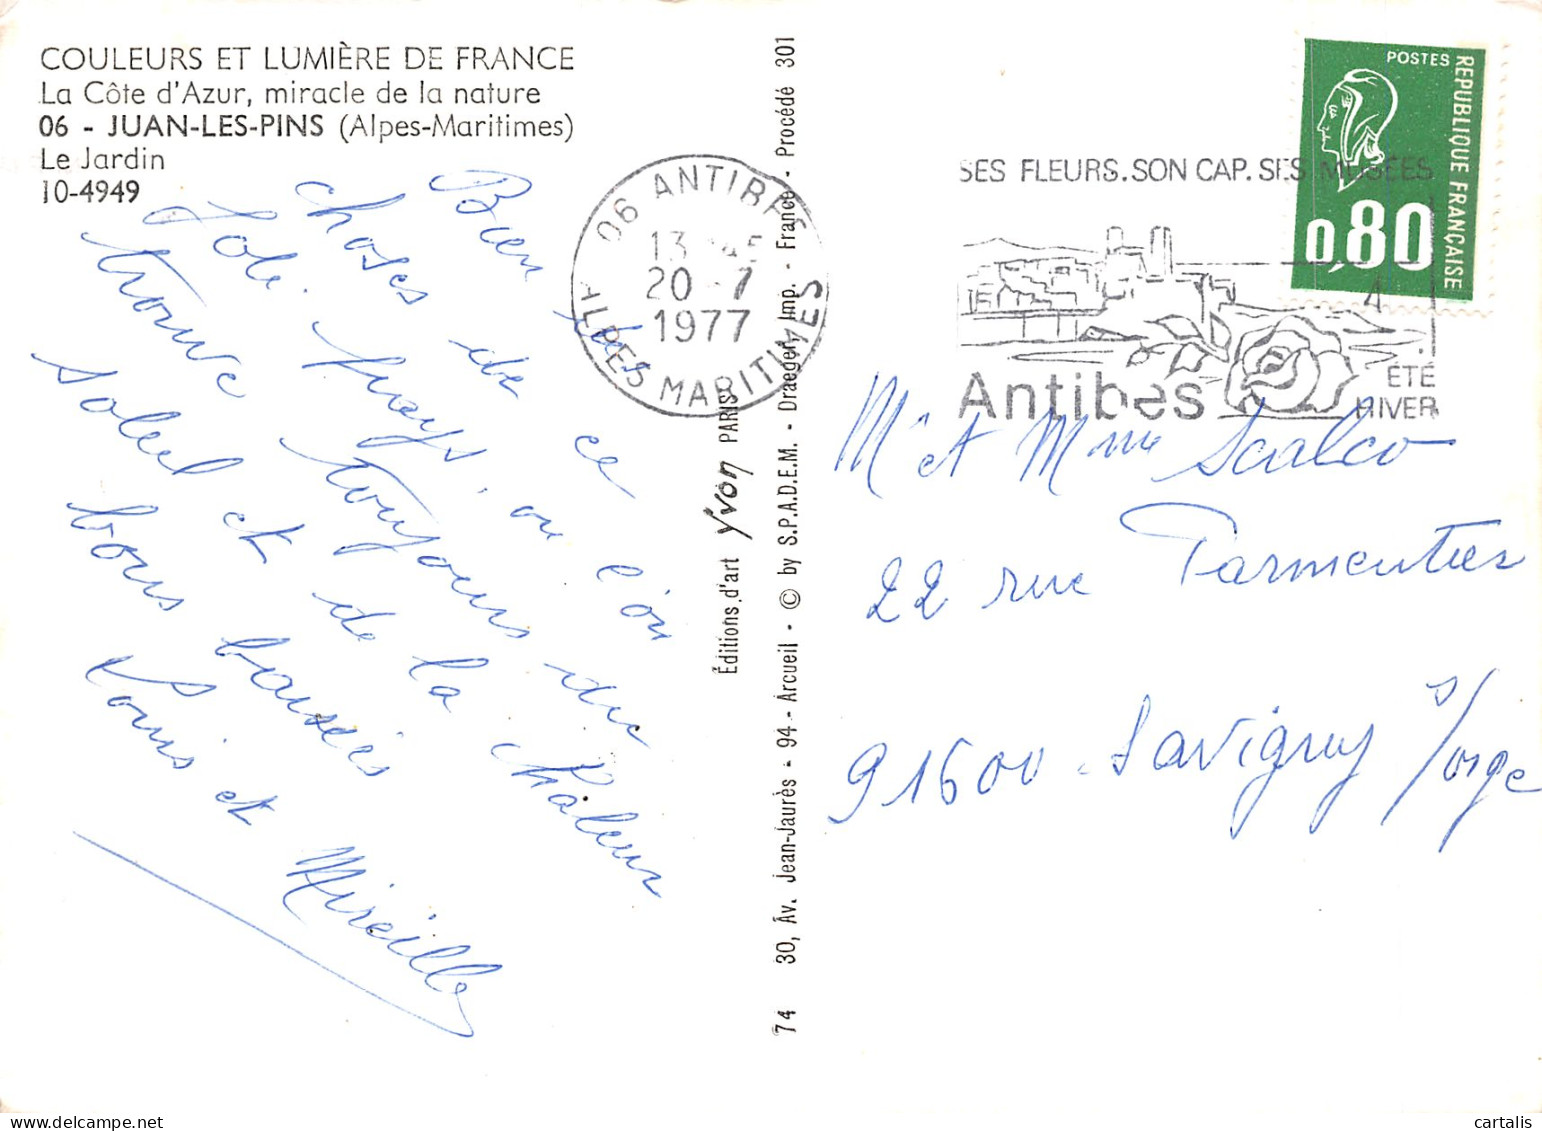 COULEURS ET LUMIÈRE DE FRANCE
La Côte d'Azur, miracle de la nature
06 - JUAN-LES-PINS (Alpes-Maritimes)
Le Jardin
10-4949
Bien des
choses de ce
Joli pays, où l'on
trouve toujours du
soleil et de la chaleur
bons baisers
Louis et Mireille
06 ANTIBES
13 45
20 -7
1977
ALPES MARITIMES
Éditions d'art Yvon PARIS
74 30, Av. Jean-Jaurès - 94 - Arcueil - © by S.P.A.D.E.M. - Draeger, Imp. - France - Procédé 301
SES FLEURS. SON CAP. SES MUSÉES
Antibes
ÉTÉ
HIVER
POSTES
REPUBLIQUE FRANÇAISE
0,80
Mr et Mme Scalco
22 rue Parmentier
91600 Savigny s/orge
cartalis